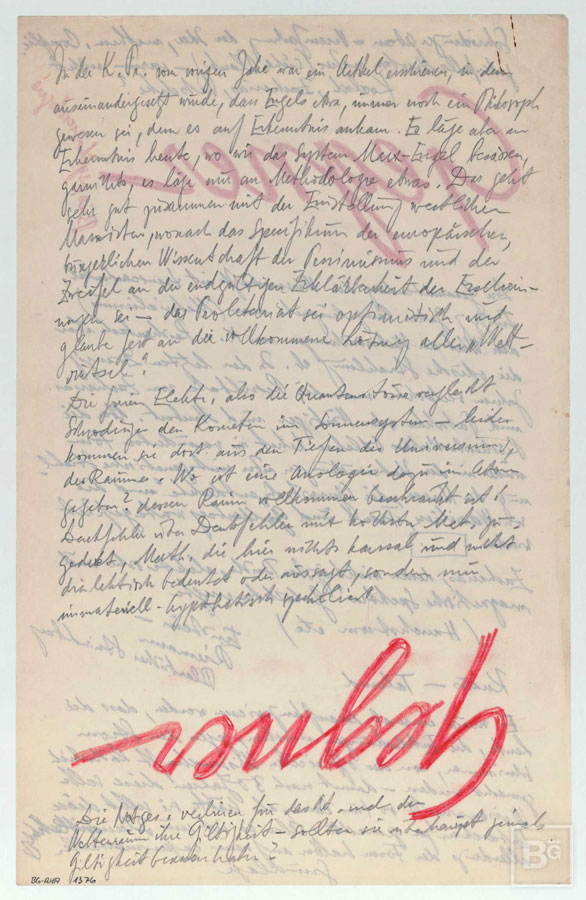 In der K. Pr. vom vorigen Jahr war ein Artikel erschienen, in dem
auseinandergesetzt wurde, dass Engels etwa, immer noch ein Philosoph
gewesen sei, dem es auf Erkenntnis ankam. Es läge aber an
Erkenntnis heute, wo wir das System Marx-Engel besässen,
garnichts, es läge nur an Methodologie etwas. Das geht
sehr gut zusammen mit der Einstellung westlicher
Marxisten, wonach das Spezifikum der europäischen,
bürgerlichen Wissenschaft der Pessimismus und der
Zweifel an der endgültigen Erklärbarkeit der Erschein-
ungen sei — das Proletariat sei optimistisch und
glaube fest an die vollkommene Lösung aller „Welt-
rätsel".
Die freien Elektr., also die Quantentöne vergleicht
Schrödinger den Kometen im Sonnensystem — leider
kommen sie dort aus den Tiefen des Universums,
des Raumes. Wo ist eine Analogie dazu im Atom
gegeben? dessen Raum vollkommen beherrscht ist!
Denkfehler über Denkfehler mit höchster Mat. zu-
gedeckt, Math. die hier nichts kausal und nicht
dialektisch bedeutet oder aussagt, sondern nur
immateriell-hypothetisch
gegner
Die verlieren für das und den
Weltenraum ihre Giltigkeit — sollten sie überhaupt jemals
Giltigkeit besessen haben?
BG-RHA 1376
BG